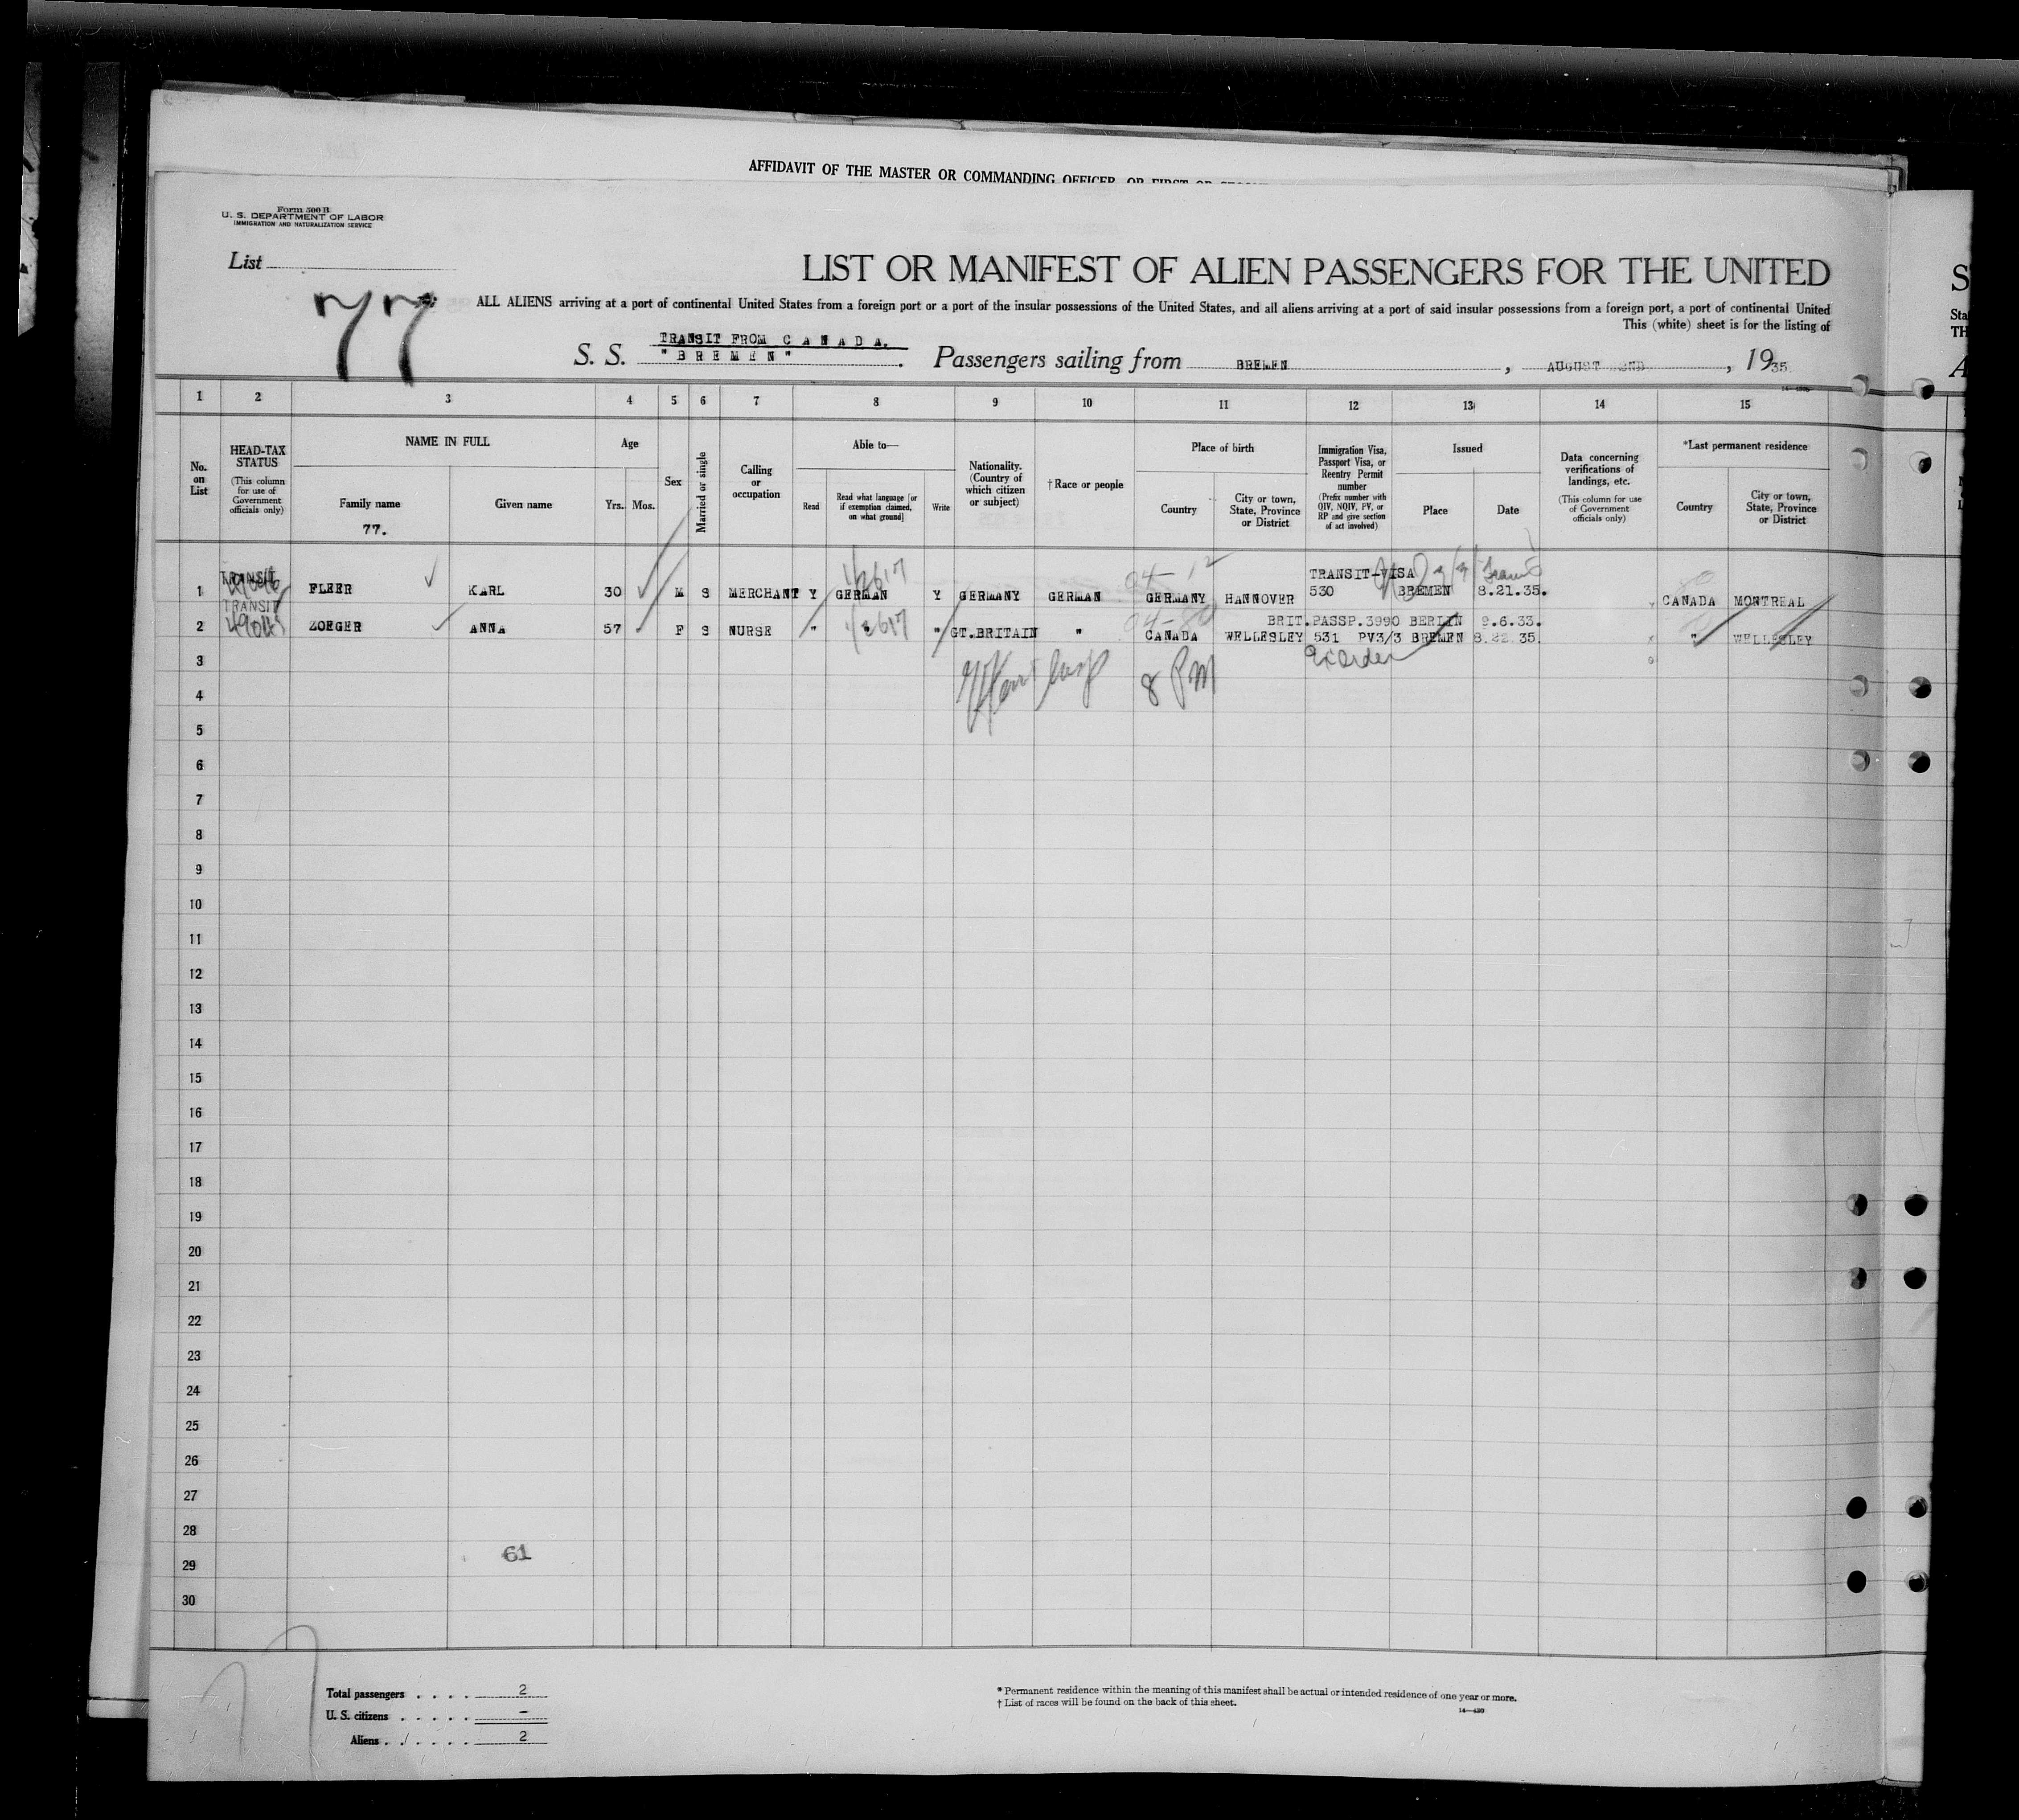 AFFIDAVIT OF THE MASTER OR COMMANDING OFFICER, OR FIRST OR
Form 500 B
U. S. DEPARTMENT OF LABOR
IMMIGRATION AND NATURALIZATION SERVICE
List
77
LIST OR MANIFEST OF ALIEN PASSENGERS FOR THE UNITED
S
ALL ALIENS arriving at a port of continental United States from a foreign port or a port of the insular possessions of the United States, and all aliens arriving at a port of said insular possessions from a foreign port, a port of continental United
Sta
This (white) sheet is for the listing of
TH
TRANSIT FROM C A N A D A.
S. S. "B R E M E N". Passengers sailing from BREMEN, AUGUST 2ND, 1935.
A
1 2 3 4 5 6 7 8 9 10 11 12 13 14 15
No. on List
HEAD-TAX STATUS
(This column for use of Government officials only)
NAME IN FULL
Family name
77.
Given name
Age
Yrs. Mos.
Sex
Married or single
Calling or occupation
Able to—
Read
Read what language [or if exemption claimed, on what ground]
Write
Nationality. (Country of which citizen or subject)
†Race or people
Place of birth
Country
City or town, State, Province or District
Immigration Visa, Passport Visa, or Reentry Permit number
(Prefix number with QIV, NQIV, PV, or RP and give section of act involved)
Issued
Place
Date
Data concerning verifications of landings, etc.
(This column for use of Government officials only)
*Last permanent residence
Country
City or town, State, Province or District
TRANSIT TRANSIT-VISA
1 FLEER KARL 30 M S MERCHANT Y GERMAN Y GERMANY GERMAN GERMANY HANNOVER 530 BREMEN 8.21.35. CANADA MONTREAL
TRANSIT BRIT.PASSP.3990 BERLIN 9.6.33.
2 ZOEGER ANNA 57 F S NURSE " " " GT.BRITAIN " CANADA WELLESLEY 531 PV3/3 BREMEN 8.22.35. " WELLESLEY
3
8 PM
4
5
6
7
8
9
10
11
12
13
14
15
16
17
18
19
20
21
22
23
24
25
26
27
28
61
29
30
77
Total passengers . . . . 2
U. S. citizens . . . . . –
Aliens . . . . . . 2
* Permanent residence within the meaning of this manifest shall be actual or intended residence of one year or more.
† List of races will be found on the back of this sheet.
14—430